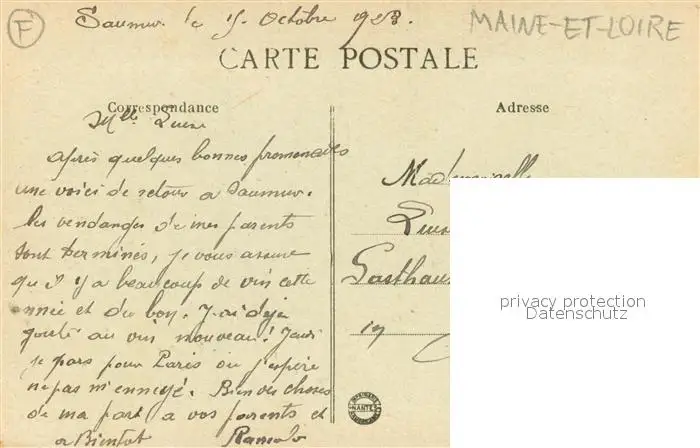 F
Saumur le 5 Octobre 192
MAINE-ET-LOIRE
CARTE POSTALE
Correspondance
Adresse
Mlle
après quelques bonnes promenades
me voici de retour a Saumur.
les vendanges de mes parents
sont terminés, je vous assure
qu'il y a beaucoup de vin cette
année et du bon. J'ai déja
gouté au vin nouveau! Jeudi
je pars pour Paris ou j'espère
ne pas m'ennuyé. Bien des choses
de ma part a vos parents et
a Bientot
Mademoiselle
Gasthaus
in
privacy protection
Datenschutz
NANTES